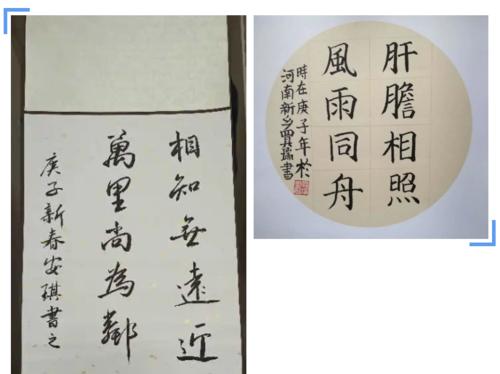 相知無遠近
萬里尚為鄰
庚子新春安琪書之
肝膽相照
風雨同舟
時在庚子年於
河南新乡賈璐書